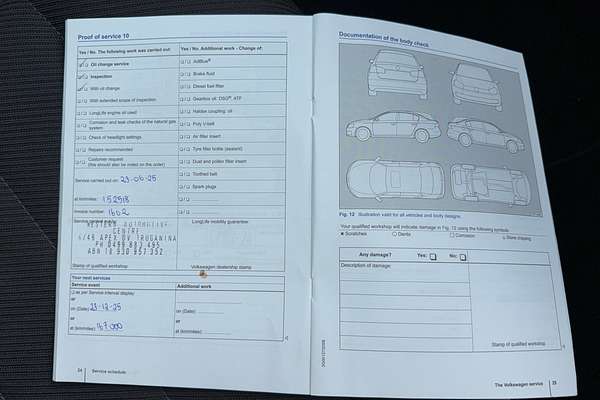 Proof of service 10
Yes / No. The following work was carried out:
Yes / No. Additional work - Change of:
Oil change service
Inspection
With oil change
With extended scope of inspection
LongLife engine oil used
Corrosion and leak checks of the natural gas
system
Check of headlight settings
Repairs recommended
Customer request
(this should also be noted on the order)
AdBlue®
Brake fluid
Diesel fuel filter
Gearbox oil: DSG®, ATF
Haldex coupling: oil
Poly V-belt
Air filter insert
Tyre filler bottle (sealant)
Dust and pollen filter insert
Toothed belt
Spark plugs
Service carried out on: 23-06-25
at km/miles: 152518
Invoice number: 1602
LongLife mobility guarantee:
WESTERN AUTOMOTIVE
CENTRE
6/49 APEX DV TRUGANINA
Stamp of qualified workshop
Volkswagen dealership stamp
Your next services
Service event
Additional work
as per Service interval display
or
on (Date) 23-12-25
or
at (km/miles) 167.000
on (Date)
or
at (km/miles)
24 Service schedule
Documentation of the body check
Fig. 12 Illustration valid for all vehicles and body designs.
Your qualified workshop will indicate damage in Fig. 12 using the following symbols:
Scratches
Dents
Corrosion
Stone chipping
Any damage? Yes: No:
Description of damage:
Stamp of qualified workshop
The Volkswagen service 25